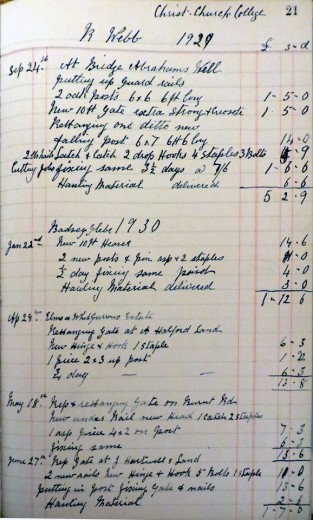 Christ-Church College 21
N Webb 1929 £ s-d
Sep 24th At Bridge Abrahams Well
putting up Guard rails
2 oak posts 6x6 6ft long 1-5-0
New 10ft Gate extra Strong & creosote 1-5-0
Rehanging one ditto new
Hanging post 6x7 6ft 6 long 14-0
Latch & Catch 2 drop Hooks 4 staples 3 Bolts 9
Cutting fixing same 3½ days a 7/6 1-6-6
Hauling Material delivered 6-6
5 2-9
Badsey Glebe 1930
Jan 22nd New 10ft 14-6
2 new posts & & 2 staples
½ day fixing same 4-0
Hauling Material delivered 3-0
1-12 6
Ap 29th Estate
Rehanging Gate at A Halford Land
New Hinge & Hook 1 Staple 6-3
1 piece 2x3 up post
day 6-3
13-8
May 18th Rep & rehanging Gate on Burnt Hd
New under Rail new head 1 Catch 2 staples
1 piece 4x2 on post 7-3
fixing same 6-3
13-6
June 27th Rep Gate at J Hartwell's Land
2 new rails New Hinge & Hook 5 Bolts 1 staple
putting in post fixing Gate & rails 13-6
Hauling Material 2-6
1-7-0